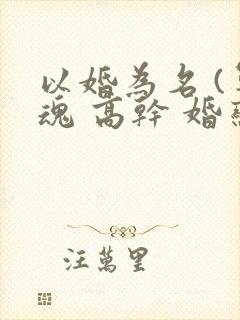 以婚為名(
魂 高幹 婚
汪萬里